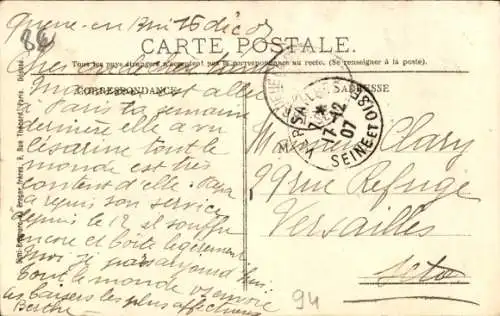 en Brie 15 déc 07
84
CARTE POSTALE.
Tous les pays étrangers n'acceptent pas la correspondance au recto. (Se renseigner à la poste).
CORRESPONDANCE
ADRESSE
VERSAILLES
17-12
07
SEINE ET OISE
est allée
à Paris la semaine
dernière elle a vu
tout le
monde est très
content d'elle. Papa
a repris son service
depuis le 12, il souffre
encore et boîte légèrement
Moi
tout le monde envoie
les baisers les plus affectueux
Berthe
Monsieur Clary
29 rue Refuge
Versailles
S et O
94